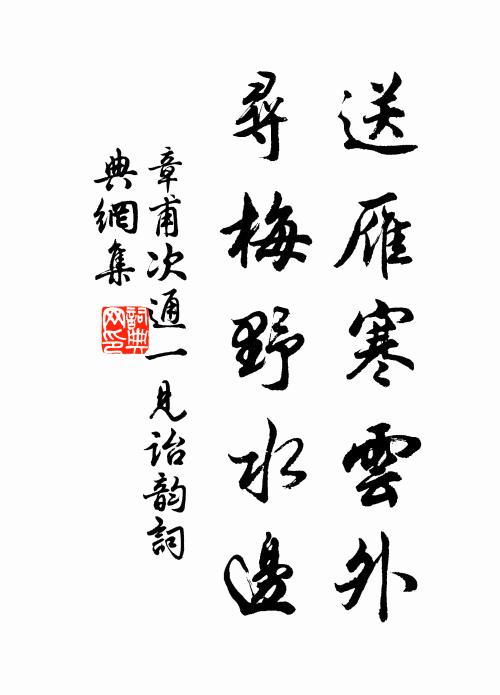 送雁寒雲外
尋梅野水邊
章甫次通一見詒韵詞
典網集
詞典
网印